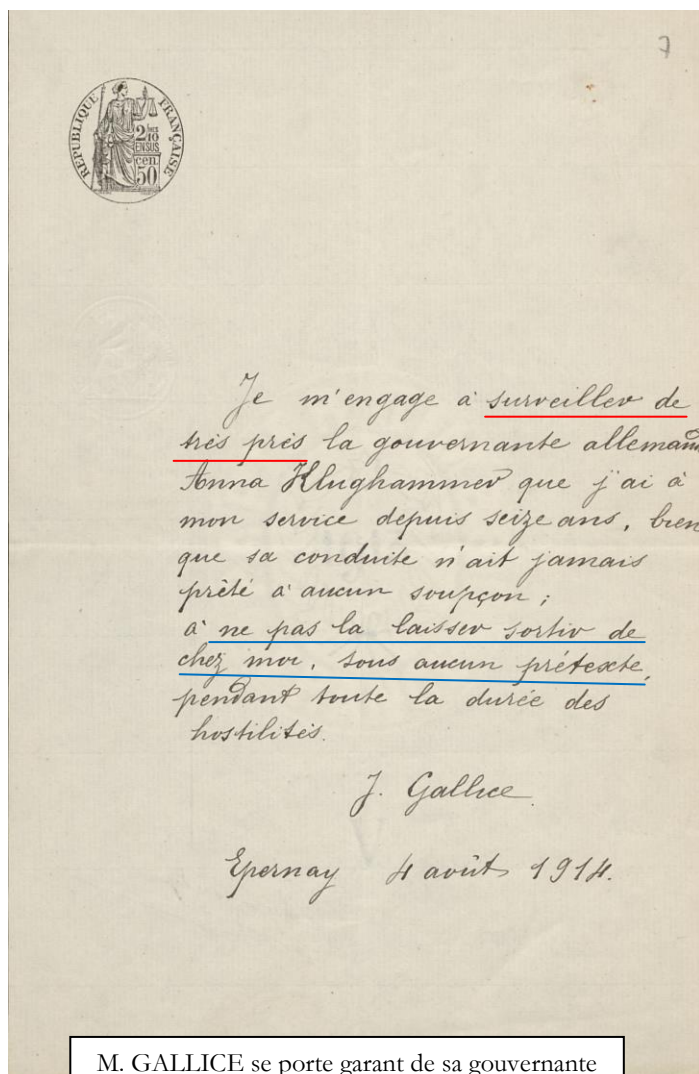 7
RÉPUBLIQUE FRANÇAISE
2/10
EN SUS
cen.
50
Je m'engage à surveiller de
très près la gouvernante alleman
Anna Klughammer que j'ai à
mon service depuis seize ans, bien
que sa conduite n'ait jamais
prêté à aucun soupçon ;
à ne pas la laisser sortir de
chez moi, sous aucun prétexte,
pendant toute la durée des
hostilités.
J. Gallice
Epernay 4 août 1914.
M. GALLICE se porte garant de sa gouvernante